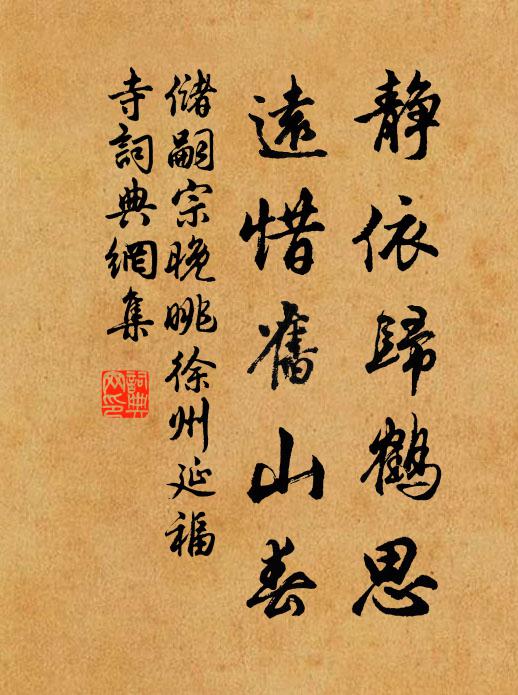 静依歸鶴思
遠惜舊山春
儲嗣宗晚眺徐州延福
寺詞典網集
詞典
网印